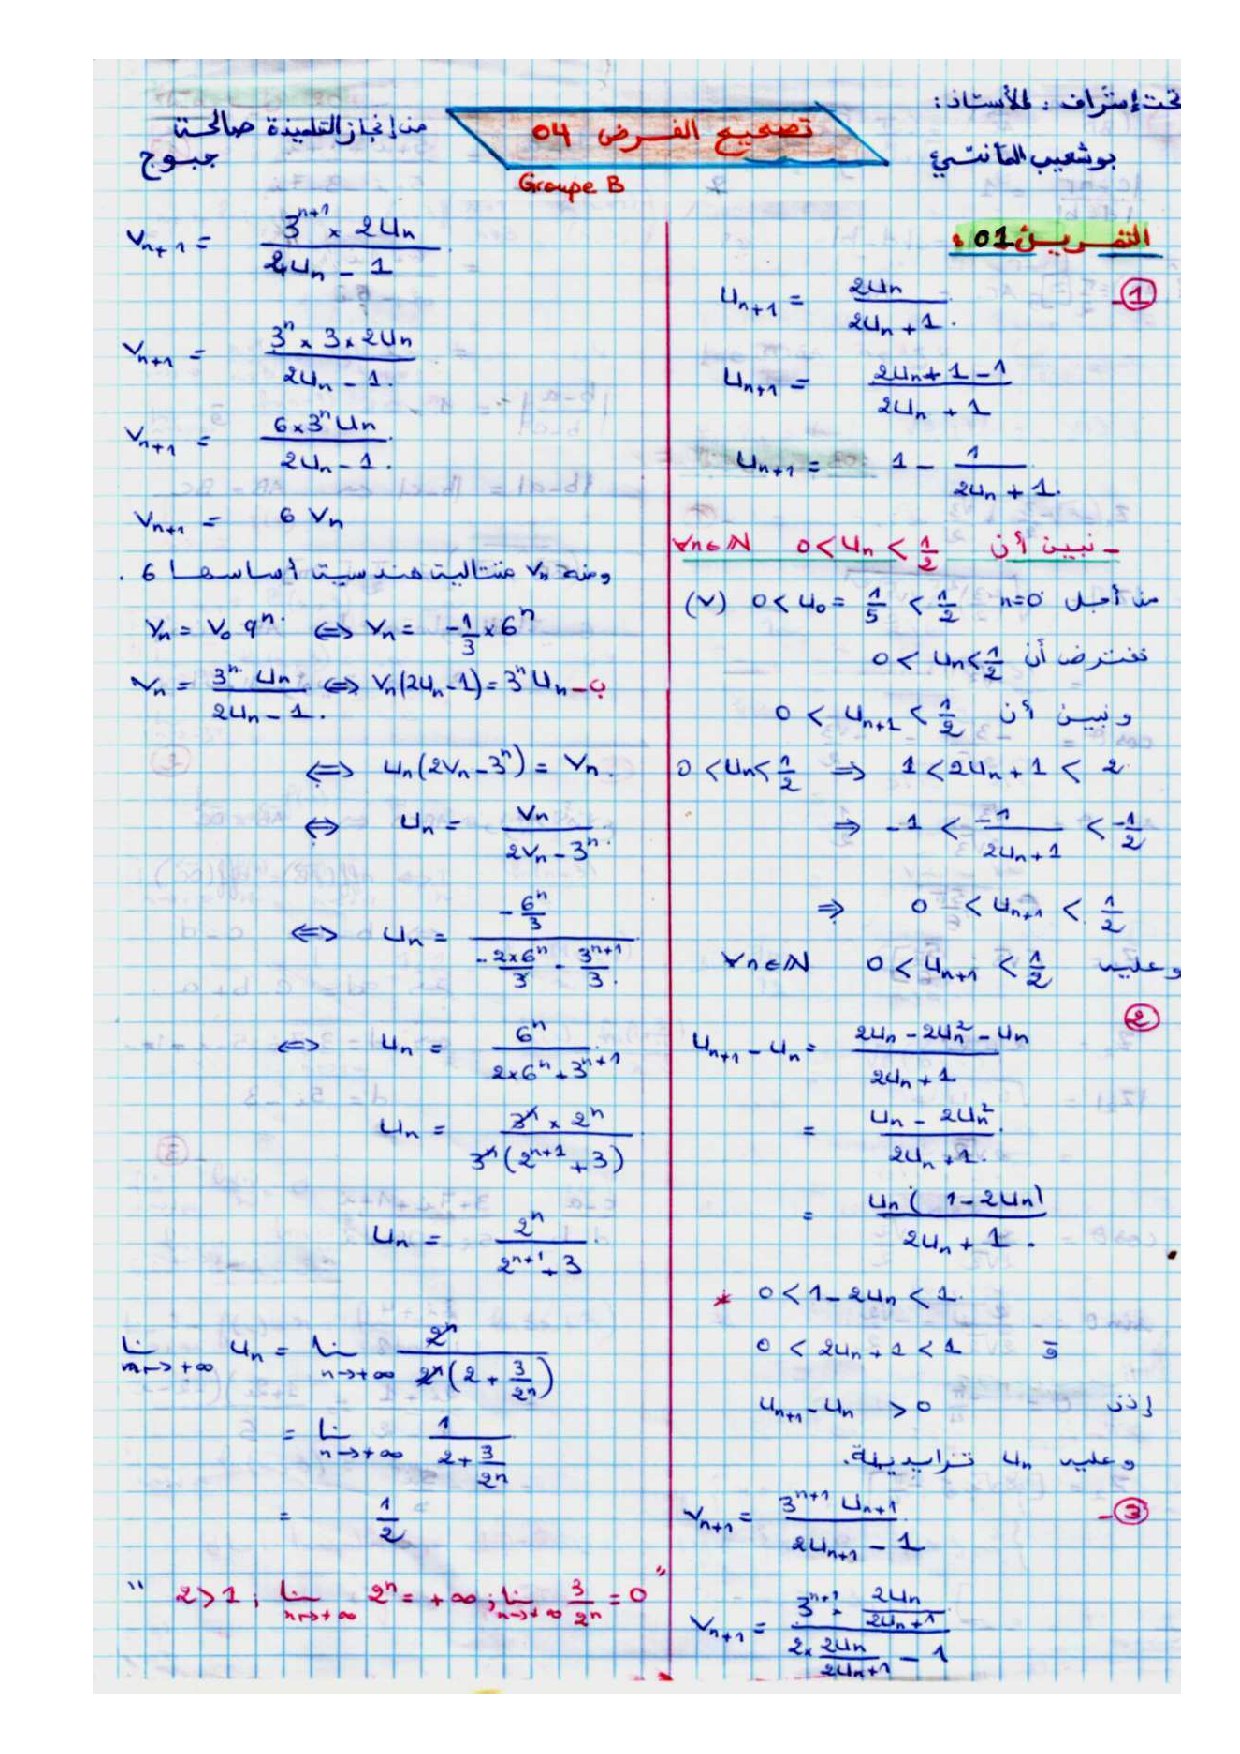 تحت إشراف : الأستاذ :
بوشعيب المانتي
تصحيح الفرض 04
Groupe B
من إنجاز التلميذة صالحة
جبوج
التمرين 01 :
1
u_{n+1} = 2u_n / (2u_n + 1)
u_{n+1} = (2u_n + 1 - 1) / (2u_n + 1)
u_{n+1} = 1 - 1 / (2u_n + 1)
- نبين أن 0 < u_n < 1/2 ∀n∈ℕ
من أجل n=0 0 < u_0 = 1/5 < 1/2 (V)
نفترض أن 0 < u_n < 1/2
ونبين أن 0 < u_{n+1} < 1/2
0 < u_n < 1/2 ⇒ 1 < 2u_n + 1 < 2
⇒ -1 < -1 / (2u_n + 1) < -1/2
⇒ 0 < u_{n+1} < 1/2
وعليه 0 < u_{n+1} < 1/2 ∀n∈ℕ
2
u_{n+1} - u_n = (2u_n - 2u_n^2 - u_n) / (2u_n + 1)
= (u_n - 2u_n^2) / (2u_n + 1)
= u_n(1 - 2u_n) / (2u_n + 1)
* 0 < 1 - 2u_n < 1
و 0 < 2u_n + 1 < 1
إذن u_{n+1} - u_n > 0
وعليه u_n تزايدية.
3 -
V_{n+1} = 3^{n+1} u_{n+1} / (2u_{n+1} - 1)
V_{n+1} = (3^{n+1} × 2u_n / (2u_n + 1)) / (2 × 2u_n / (2u_n + 1) - 1)
V_{n+1} = (3^{n+1} × 2u_n) / (2u_n - 1)
V_{n+1} = (3^n × 3 × 2u_n) / (2u_n - 1)
V_{n+1} = (6 × 3^n u_n) / (2u_n - 1)
V_{n+1} = 6 V_n
ومنه V_n متتالية هندسية أساسها 6 .
V_n = V_0 q^n ⇔ V_n = -1/3 × 6^n
ب- V_n = 3^n u_n / (2u_n - 1) ⇔ V_n(2u_n - 1) = 3^n u_n
⇔ u_n(2V_n - 3^n) = V_n
⇔ u_n = V_n / (2V_n - 3^n)
⇔ u_n = (-6^n/3) / (-2×6^n/3 - 3^{n+1}/3)
⇔ u_n = 6^n / (2×6^n + 3^{n+1})
u_n = (3^n × 2^n) / (3^n(2^{n+1} + 3))
u_n = 2^n / (2^{n+1} + 3)
lim_{n→+∞} u_n = lim_{n→+∞} 2^n / (2^n(2 + 3/2^n))
= lim_{n→+∞} 1 / (2 + 3/2^n)
= 1/2
" 2 > 1 ; lim_{n→+∞} 2^n = +∞ ; lim_{n→+∞} 3/2^n = 0 "